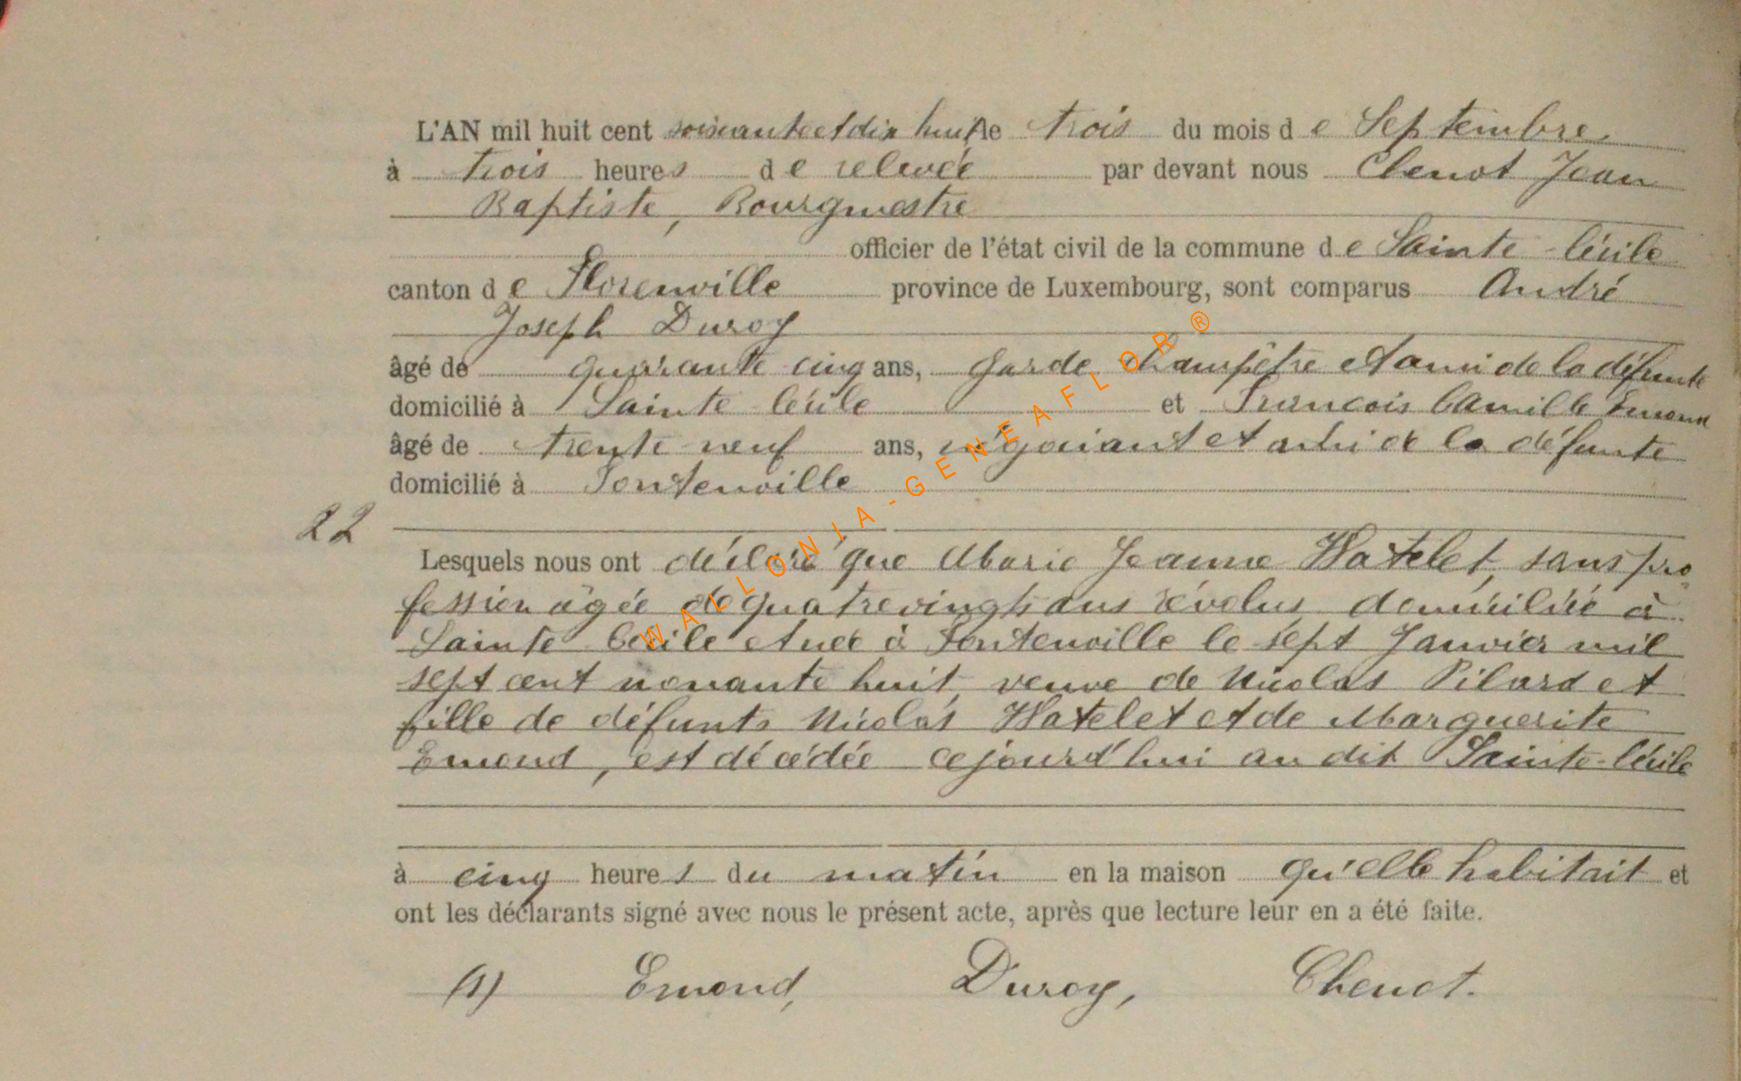 L'AN mil huit cent soixante et dix huit, le trois du mois de Septembre,
à trois heures de relevée par devant nous Chenot Jean
Baptiste, Bourgmestre
officier de l'état civil de la commune de Sainte-Cécile
canton de Florenville province de Luxembourg, sont comparus André
Joseph Duroy
âgé de quarante cinq ans, garde champêtre et ami de la défunte
domicilié à Sainte Cécile et François Camille Emond
âgé de trente neuf ans, négociant et ami de la défunte
domicilié à Fontenoille
22
Lesquels nous ont déclaré que Marie Jeanne Watelet, sans pro-
fession âgée de quatre vingts ans révolus, domiciliée à
Sainte Cécile et née à Fontenoille le sept Janvier mil
sept cent nonante huit, veuve de Nicolas Pilard et
fille de défunts Nicolas Watelet et de Marguerite
Emond, est décédée cejourd'hui au dit Sainte-Cécile
à cinq heures du matin en la maison qu'elle habitait et
ont les déclarants signé avec nous le présent acte, après que lecture leur en a été faite.
(s) Emond, Duroy, Chenot.
WALLONIA-GENEAFLOR®